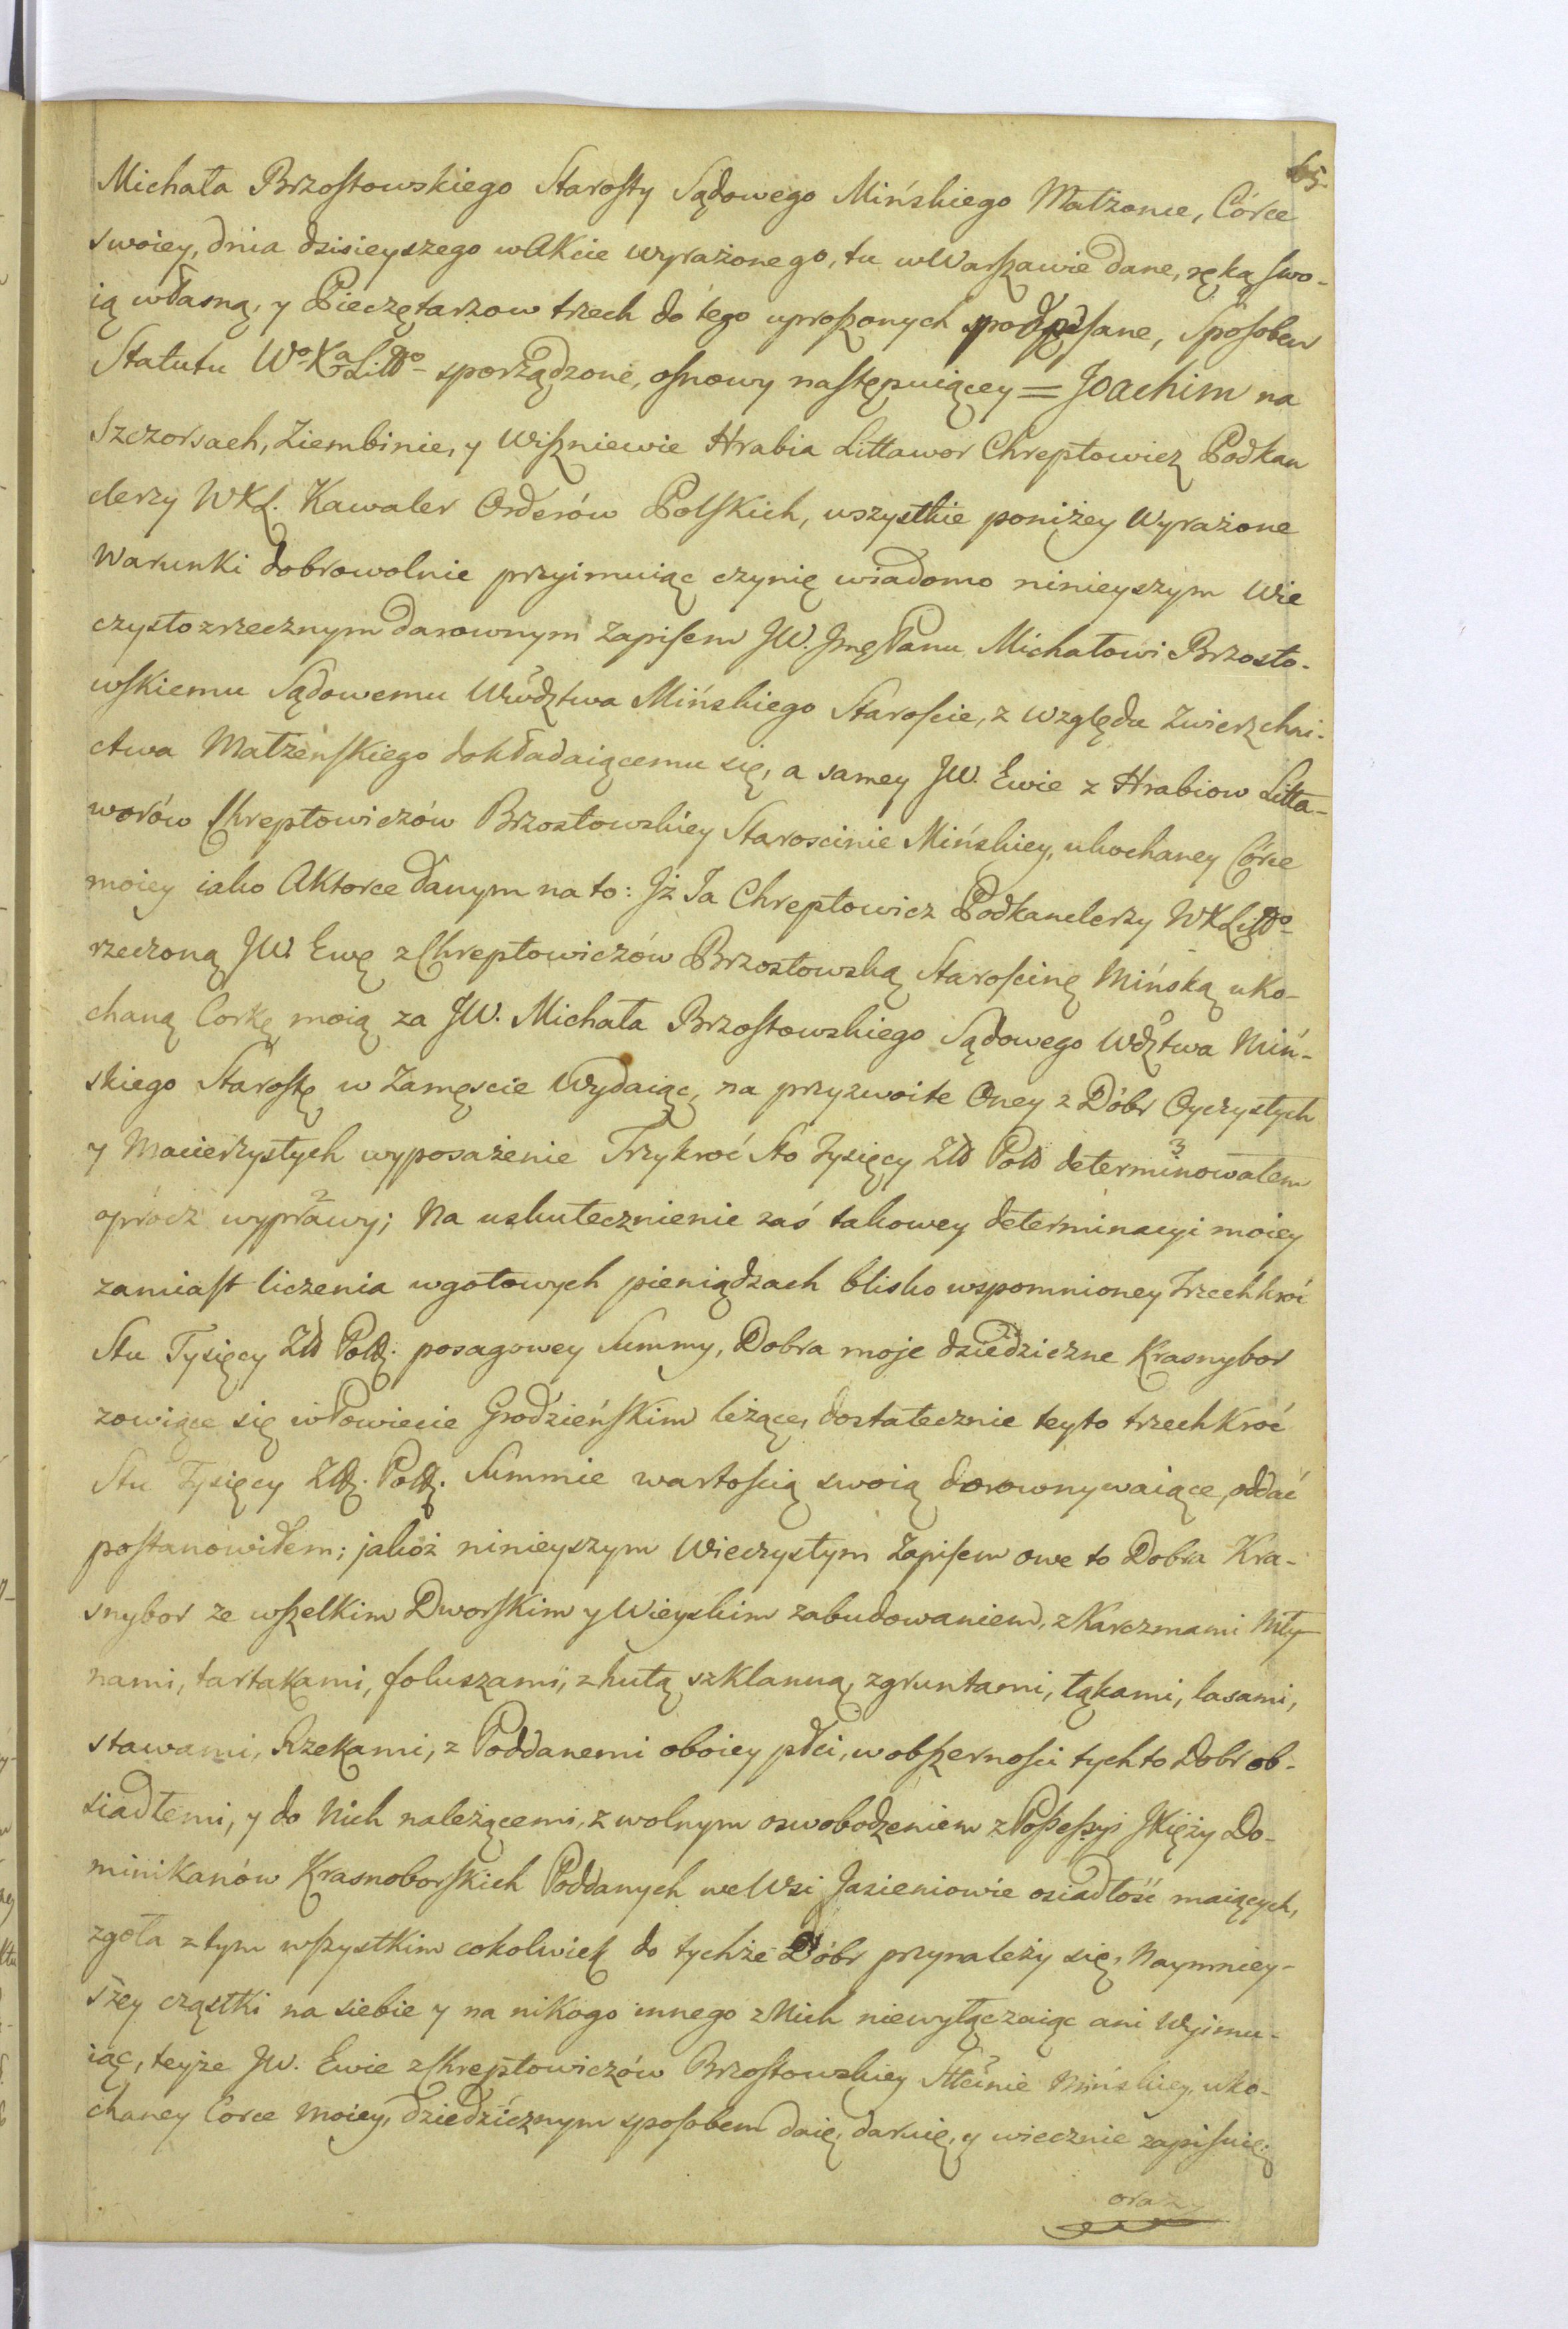 65.
Michała Brzostowskiego Starosty Sądowego Mińskiego Małżonce, Córce
swoiey, dnia dzisieyszego w Akcie wyrażonego, tu w Warszawie dane, ręką swo-
ią własną, y Pieczętarzow trzech do tego uproszonych podpisane, Sposobem
Statutu Wo Xa Litto sporządzone, osnowy następuiącey = Joachim na
Szczorsach, Ziembinie, y Wiszniewie Hrabia Littawor Chreptowicz Podkan
clerzy WXL. Kawaler Orderów Polskich, wszystkie poniżey Wyrażone
Warunki dobrowolnie przyimuiąc czynię wiadomo ninieyszym Wie
czystozrzecznym darownym Zapisem JW. Jmę Panu Michałowi Brzosto-
wskiemu Sądowemu Wództwa Mińskiego Staroscie, z względu Zwierzchni-
ctwa Małżeńskiego dokładaiącemu się, a samey JW. Ewie z Hrabiow Litta-
worów Chreptowiczów Brzostowskiey Staroscinie Mińskiey, ukochaney Córce
moiey iako Aktorce danym na to: Jż Ja Chreptowicz Podkanclerzy WXLitto
rzeczoną JW. Ewę z Chreptowiczów Brzostowską Starościnę Mińską uko-
chaną Corkę moią za JW. Michała Brzostowskiego Sądowego Wdztwa Miń-
skiego Starostę w Zamęscie Wydaiąc, na przyzwoite Oney z Dóbr Oyczystych
y Macierzystych wyposażenie Trzykroć Sto Tysięcy Złł Poll determinowałem
oprócz wyprawy; Na uskutecznienie zaś takowey determinacyi moiey
zamiast liczenia w gotowych pieniądzach blisko wspomnioney Trzechkroć
Stu Tysięcy Złł Pollch. posagowey Summy, Dobra moje dziedziczne Krasnybor
zowiące się w Powiecie Grodzieńskim leżące, dostatecznie teyto trzechkroć
Stu Tysięcy Złłch. Pollch. Summie wartością swoią dorownywaiące, oddać
postanowiłem; jakoż ninieyszym Wieczystym Zapisem owe to Dobra Kra-
snybor ze wszelkim Dworskim y Wieyskim zabudowaniem, z Karczmami Mły-
nami, tartakami, foluszami, z hutą szklanną, z gruntami, łąkami, lasami,
stawami, Rzekami, z Poddanemi oboiey płci, w obszerności tych to Dobr ob-
siadłemi, y do Nich należącemi, z wolnym oswobodzeniem z Possessyi JXięży Do-
minikanów Krasnoborskich Poddanych we Wsi Jasieniowie osiadłość maiących,
zgoła z tym wszystkim cokolwiek do tychże Dóbr przynależy się, Naymniey-
szey cząstki na siebie y na nikogo innego z Nich niewyłączaiąc ani Wyimu-
iąc, teyże JW. Ewie z Chreptowiczów Brzostowskiey Stścinie Mińskiey, uko-
chaney Corce moiey, dziedzicznym sposobem daię, daruię, y wiecznie zapisuię;
oraz